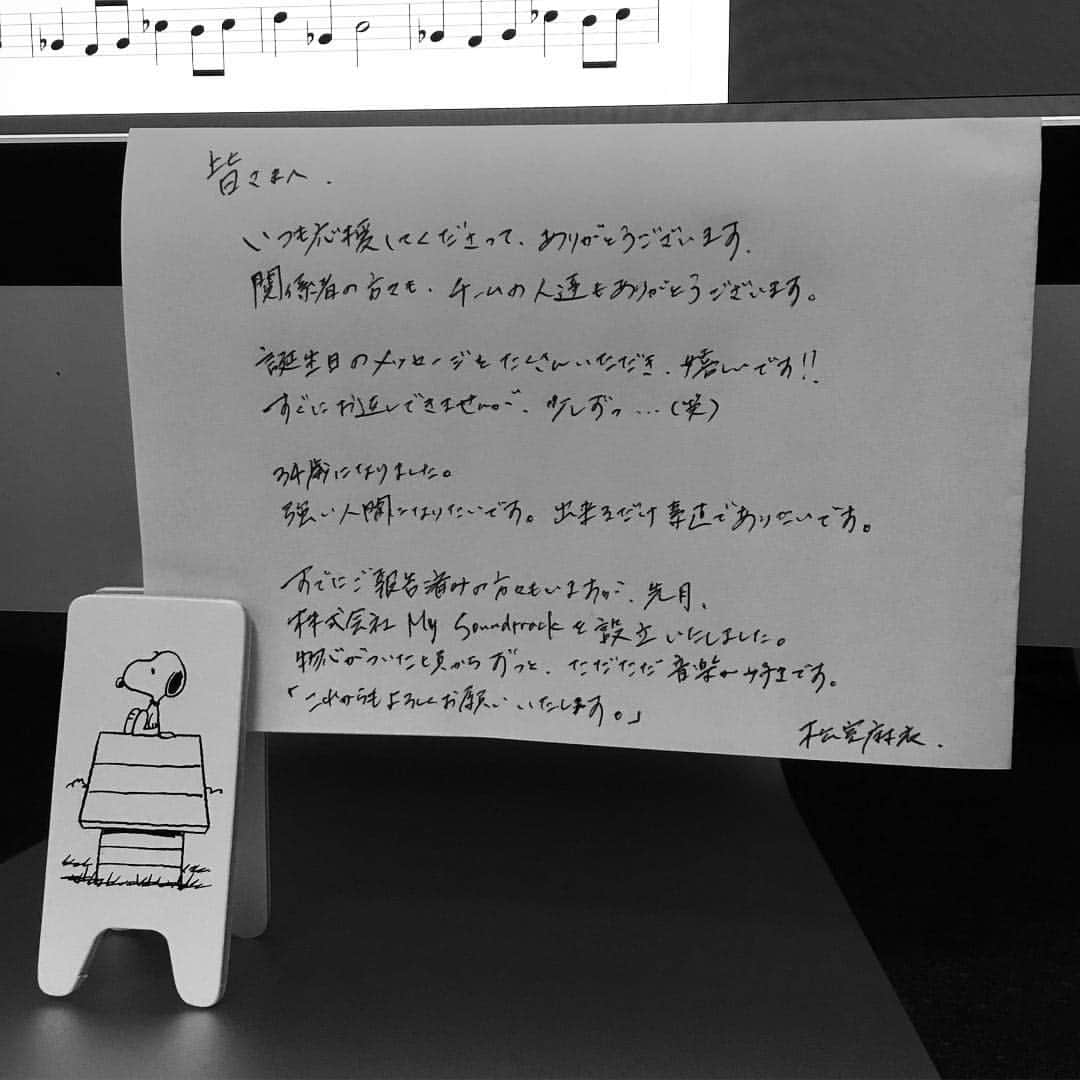 皆さまへ.
いつも応援してくださって、ありがとうございます.
関係者の方々も、チームの人達もありがとうございます。
誕生日のメッセージをたくさんいただき、嬉しいです!!
すぐにお返しできませんが、少しずつ...(笑)
34歳になりました。
強い人間になりたいです。出来るだけ素直でありたいです。
すでにご報告済みの方々もいますが、先月、
株式会社 My Soundtrack を設立いたしました。
物心がついた頃からずっと、ただただ音楽が好きです。
「これからもよろしくお願いいたします。」
松室麻衣.